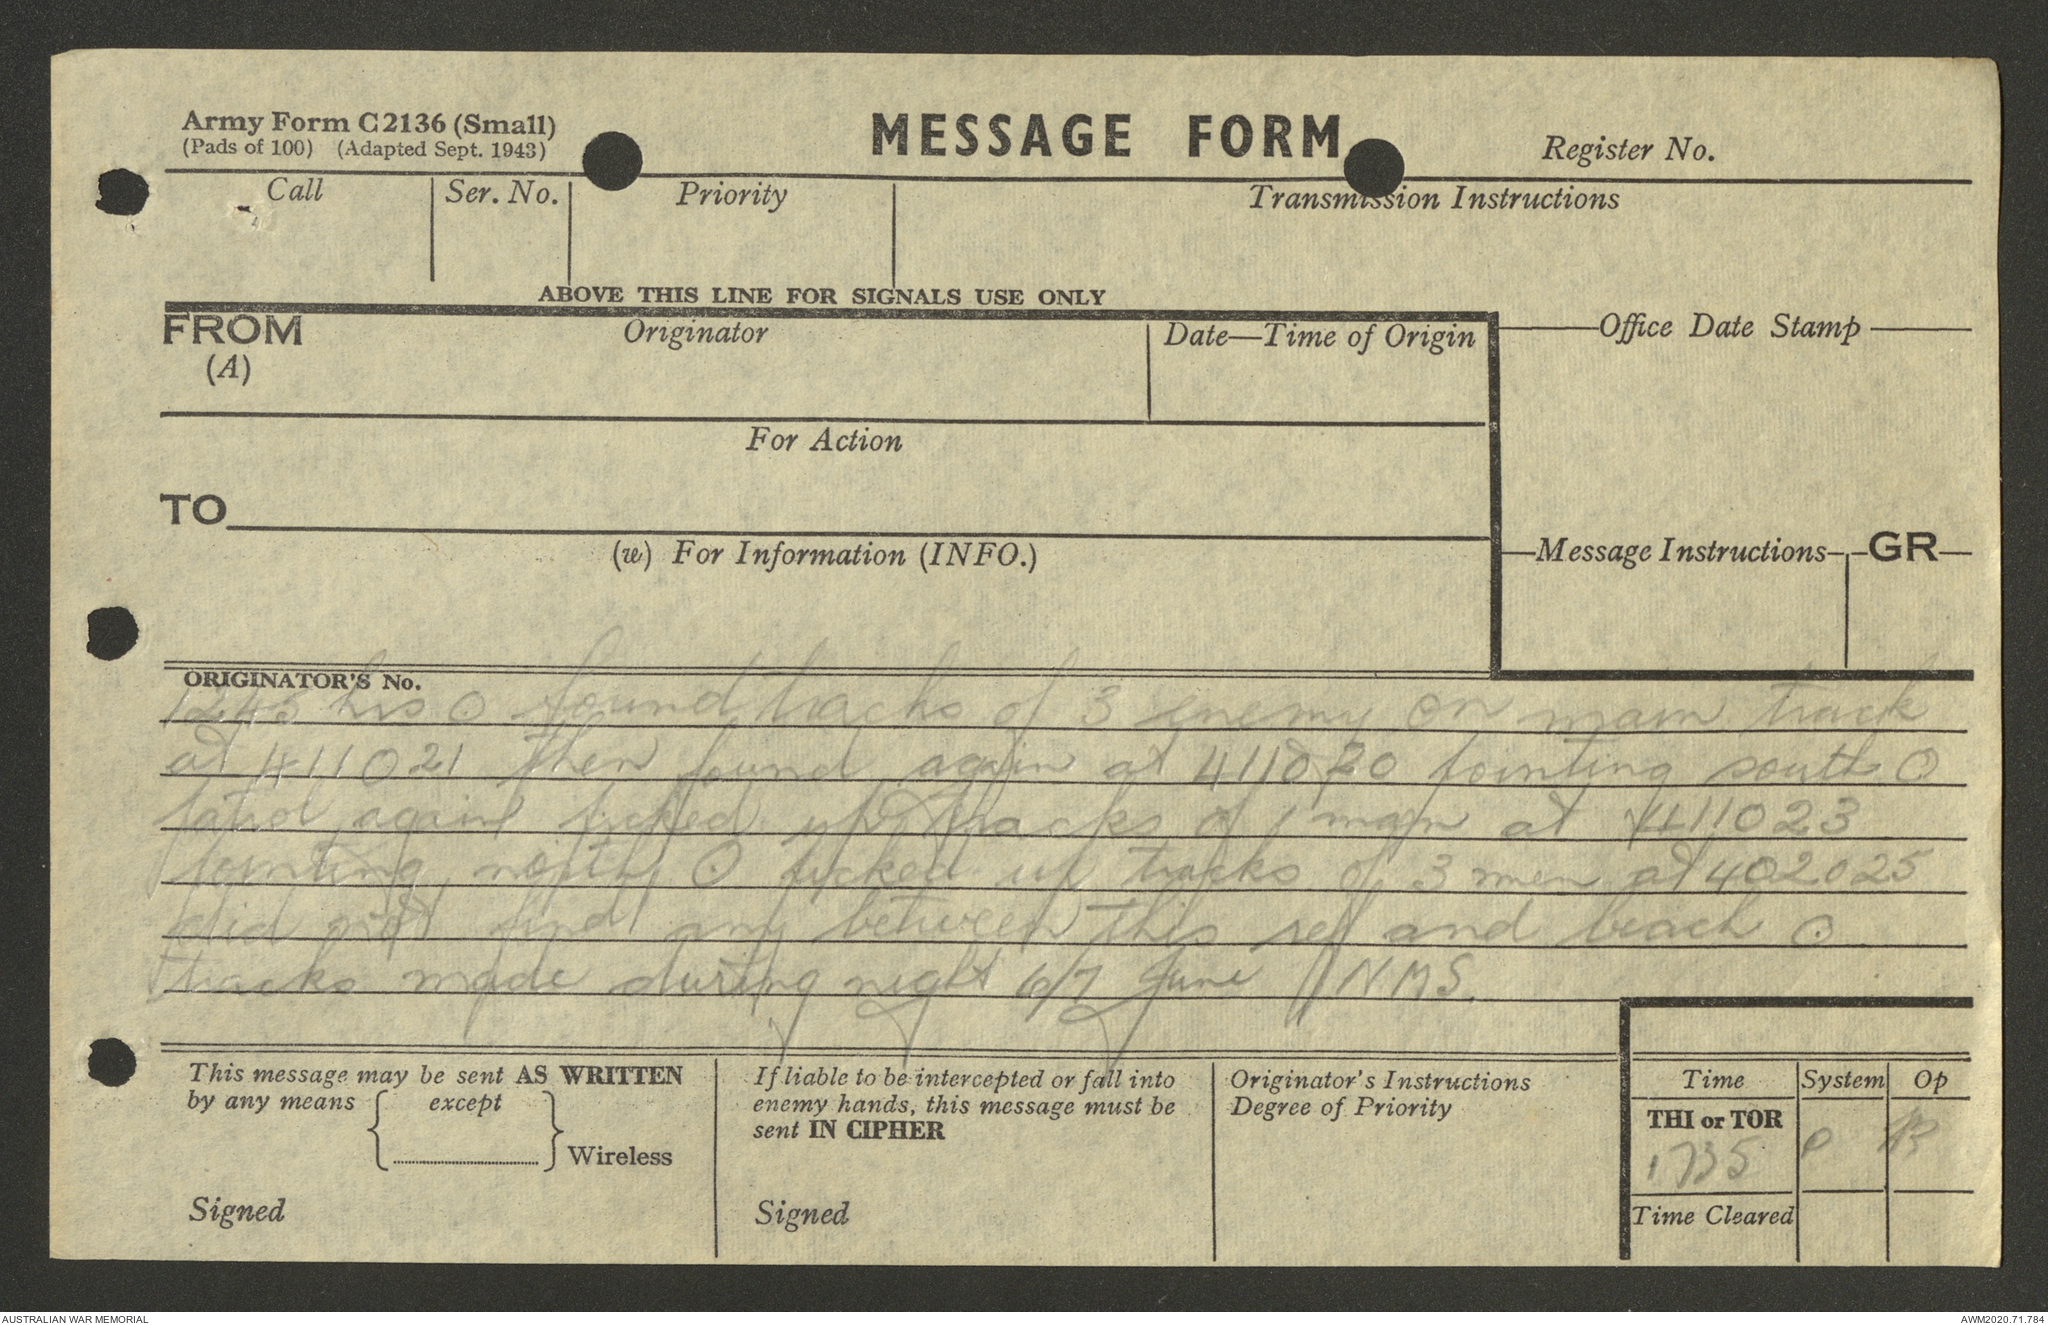 Army Form C2136 (Small)
(Pads of 100) (Adapted Sept. 1943)
MESSAGE FORM
Register No.
Call
Ser. No.
Priority
Transmission Instructions
ABOVE THIS LINE FOR SIGNALS USE ONLY
FROM
(A)
Originator
Date—Time of Origin
Office Date Stamp
For Action
TO
(w) For Information (INFO.)
Message Instructions
GR
ORIGINATOR'S No.
1245 hrs O found tracks of 3 enemy on main track
at 411021 then found again at 411020 pointing south O
patrol again picked up tracks of 1 man at 411023
pointing north O picked up tracks of 3 men at 402025
did not find any between this ref and beach O
tracks made during night 6/7 June // NMS.
This message may be sent AS WRITTEN
by any means except
Wireless
Signed
If liable to be intercepted or fall into
enemy hands, this message must be
sent IN CIPHER
Signed
Originator's Instructions
Degree of Priority
Time
System
Op
THI or TOR
1735 P
Time Cleared
AUSTRALIAN WAR MEMORIAL
AWM2020.71.784